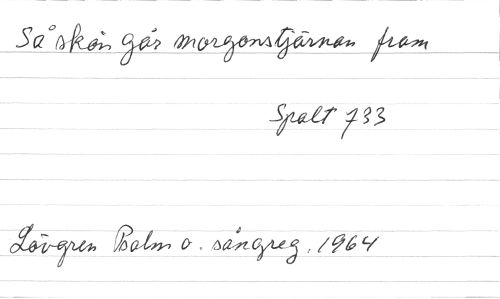 Så skön går morgonstjärnan fram
Spalt 733
Lövgren Psalm o. sångreg. 1964